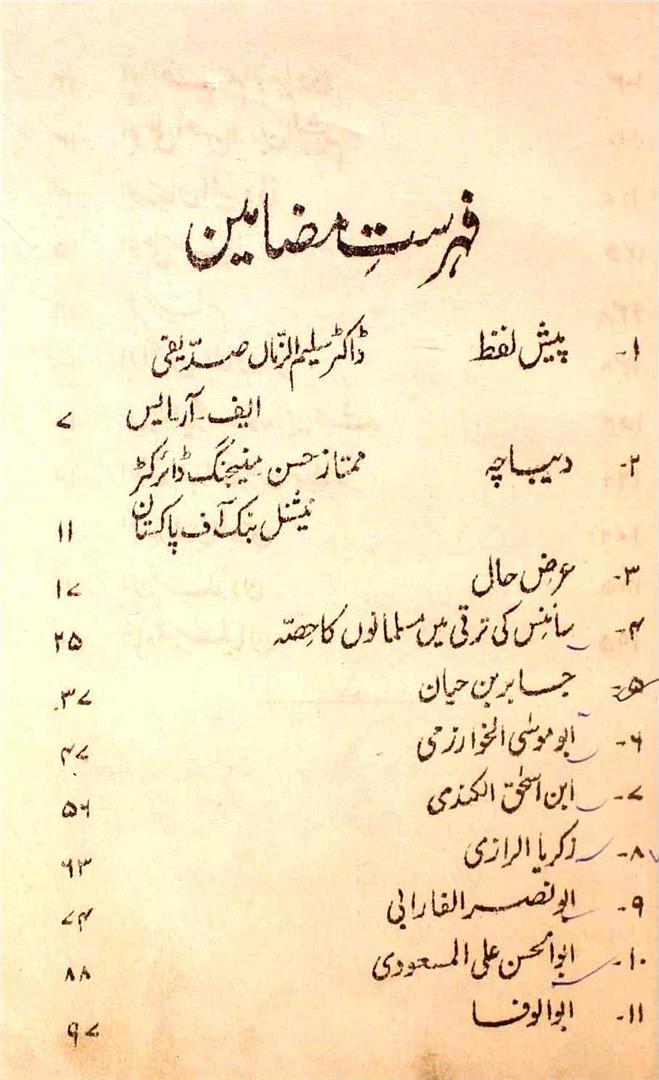 فہرستِ مضامین
۱- پیش لفظ ڈاکٹر سلیم الزّماں صدّیقی
ایف۔آر۔ایس ۷
۲- دیباچہ ممتاز حسن مینیجنگ ڈائرکٹر
نیشنل بنک آف پاکستان ۱۱
۳- عرضِ حال ۱۷
۴- سائنس کی ترقی میں مسلمانوں کا حصّہ ۲۵
۵- جابر بن حیان ۳۷
۶- ابو موسٰی الخوارزمی ۴۷
۷- ابن اسحٰق الکندی ۵۶
۸- زکریا الرازی ۶۳
۹- ابو نصر الفارابی ۷۴
۱۰- ابوالحسن علی المسعودی ۸۸
۱۱- ابوالوفا ۹۷